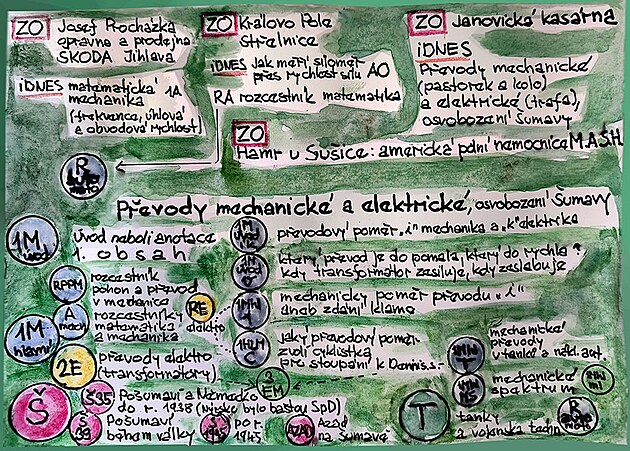 ZO Josef Procházka
opravna a prodejna
ŠKODA Jihlava
ZO Královo Pole
střelnice
iDNES Jak měří siloměr
přes rychlost sílu AO
RA rozcestník matematika
ZO Janovická kasárna
iDNES
Převody mechanické
(pastorek a kolo)
a elektrické (trafa),
osvobození Šumavy
iDNES matematická 1A
mechanika
(frekvence, úhlová
a obvodová rychlost)
ZO
Hamr u Sušice: americká polní nemocnice M.A.S.H.
R
Převody mechanické a elektrické, osvobození Šumavy
1M
úvod
Úvod neboli anotace
1. obsah
1M
převodový poměr „i“ mechanika a „k“ elektrika
který převod je do pomala, který do rychla?
kdy transformátor zesiluje, kdy zeslabuje.
RPPM
rozcestník
pohon a převod
v mechanice
A
mech
rozcestníky
matematika
a mechanika
RE
elektro
mechanický poměr převodu „i“
aneb zdání klame
1M
hlavní
jaký převodový poměr
zvolí cyklistka
při stoupání k Dennis.s.
mechanické
převody
v tanku a nákl. aut.
2E
převody elektro
(transformátory)
3
EM
mechanické
spektrum
Š
Š35
Pošumaví a Německo
do r. 1938 (Nýrsko bylo baštou SPD)
Š
39
Pošumaví
během války
Š
1945
po r.
1945
AZAD
Azad
na Šumavě
T
tanky
a vojenská techn.